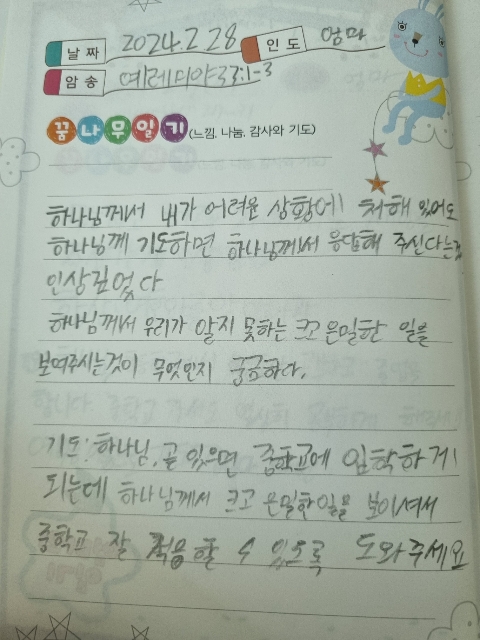 날짜 2024.2.28 인도 엄마
암송 예레미야33:1-3
꿈나무일기 (느낌, 나눔, 감사와 기도)
하나님께서 내가 어려운 상황에 처해 있어도
하나님께 기도하면 하나님께서 응답해 주신다는것
인상깊었다
하나님께서 우리가 알지 못하는 크고 은밀한 일을
보여주시는것이 무엇인지 궁금하다.
기도: 하나님, 곧 있으면 중학교에 입학하게
되는데 하나님께서 크고 은밀한일을 보이셔서
중학교 잘 적응할 수 있도록 도와주세요